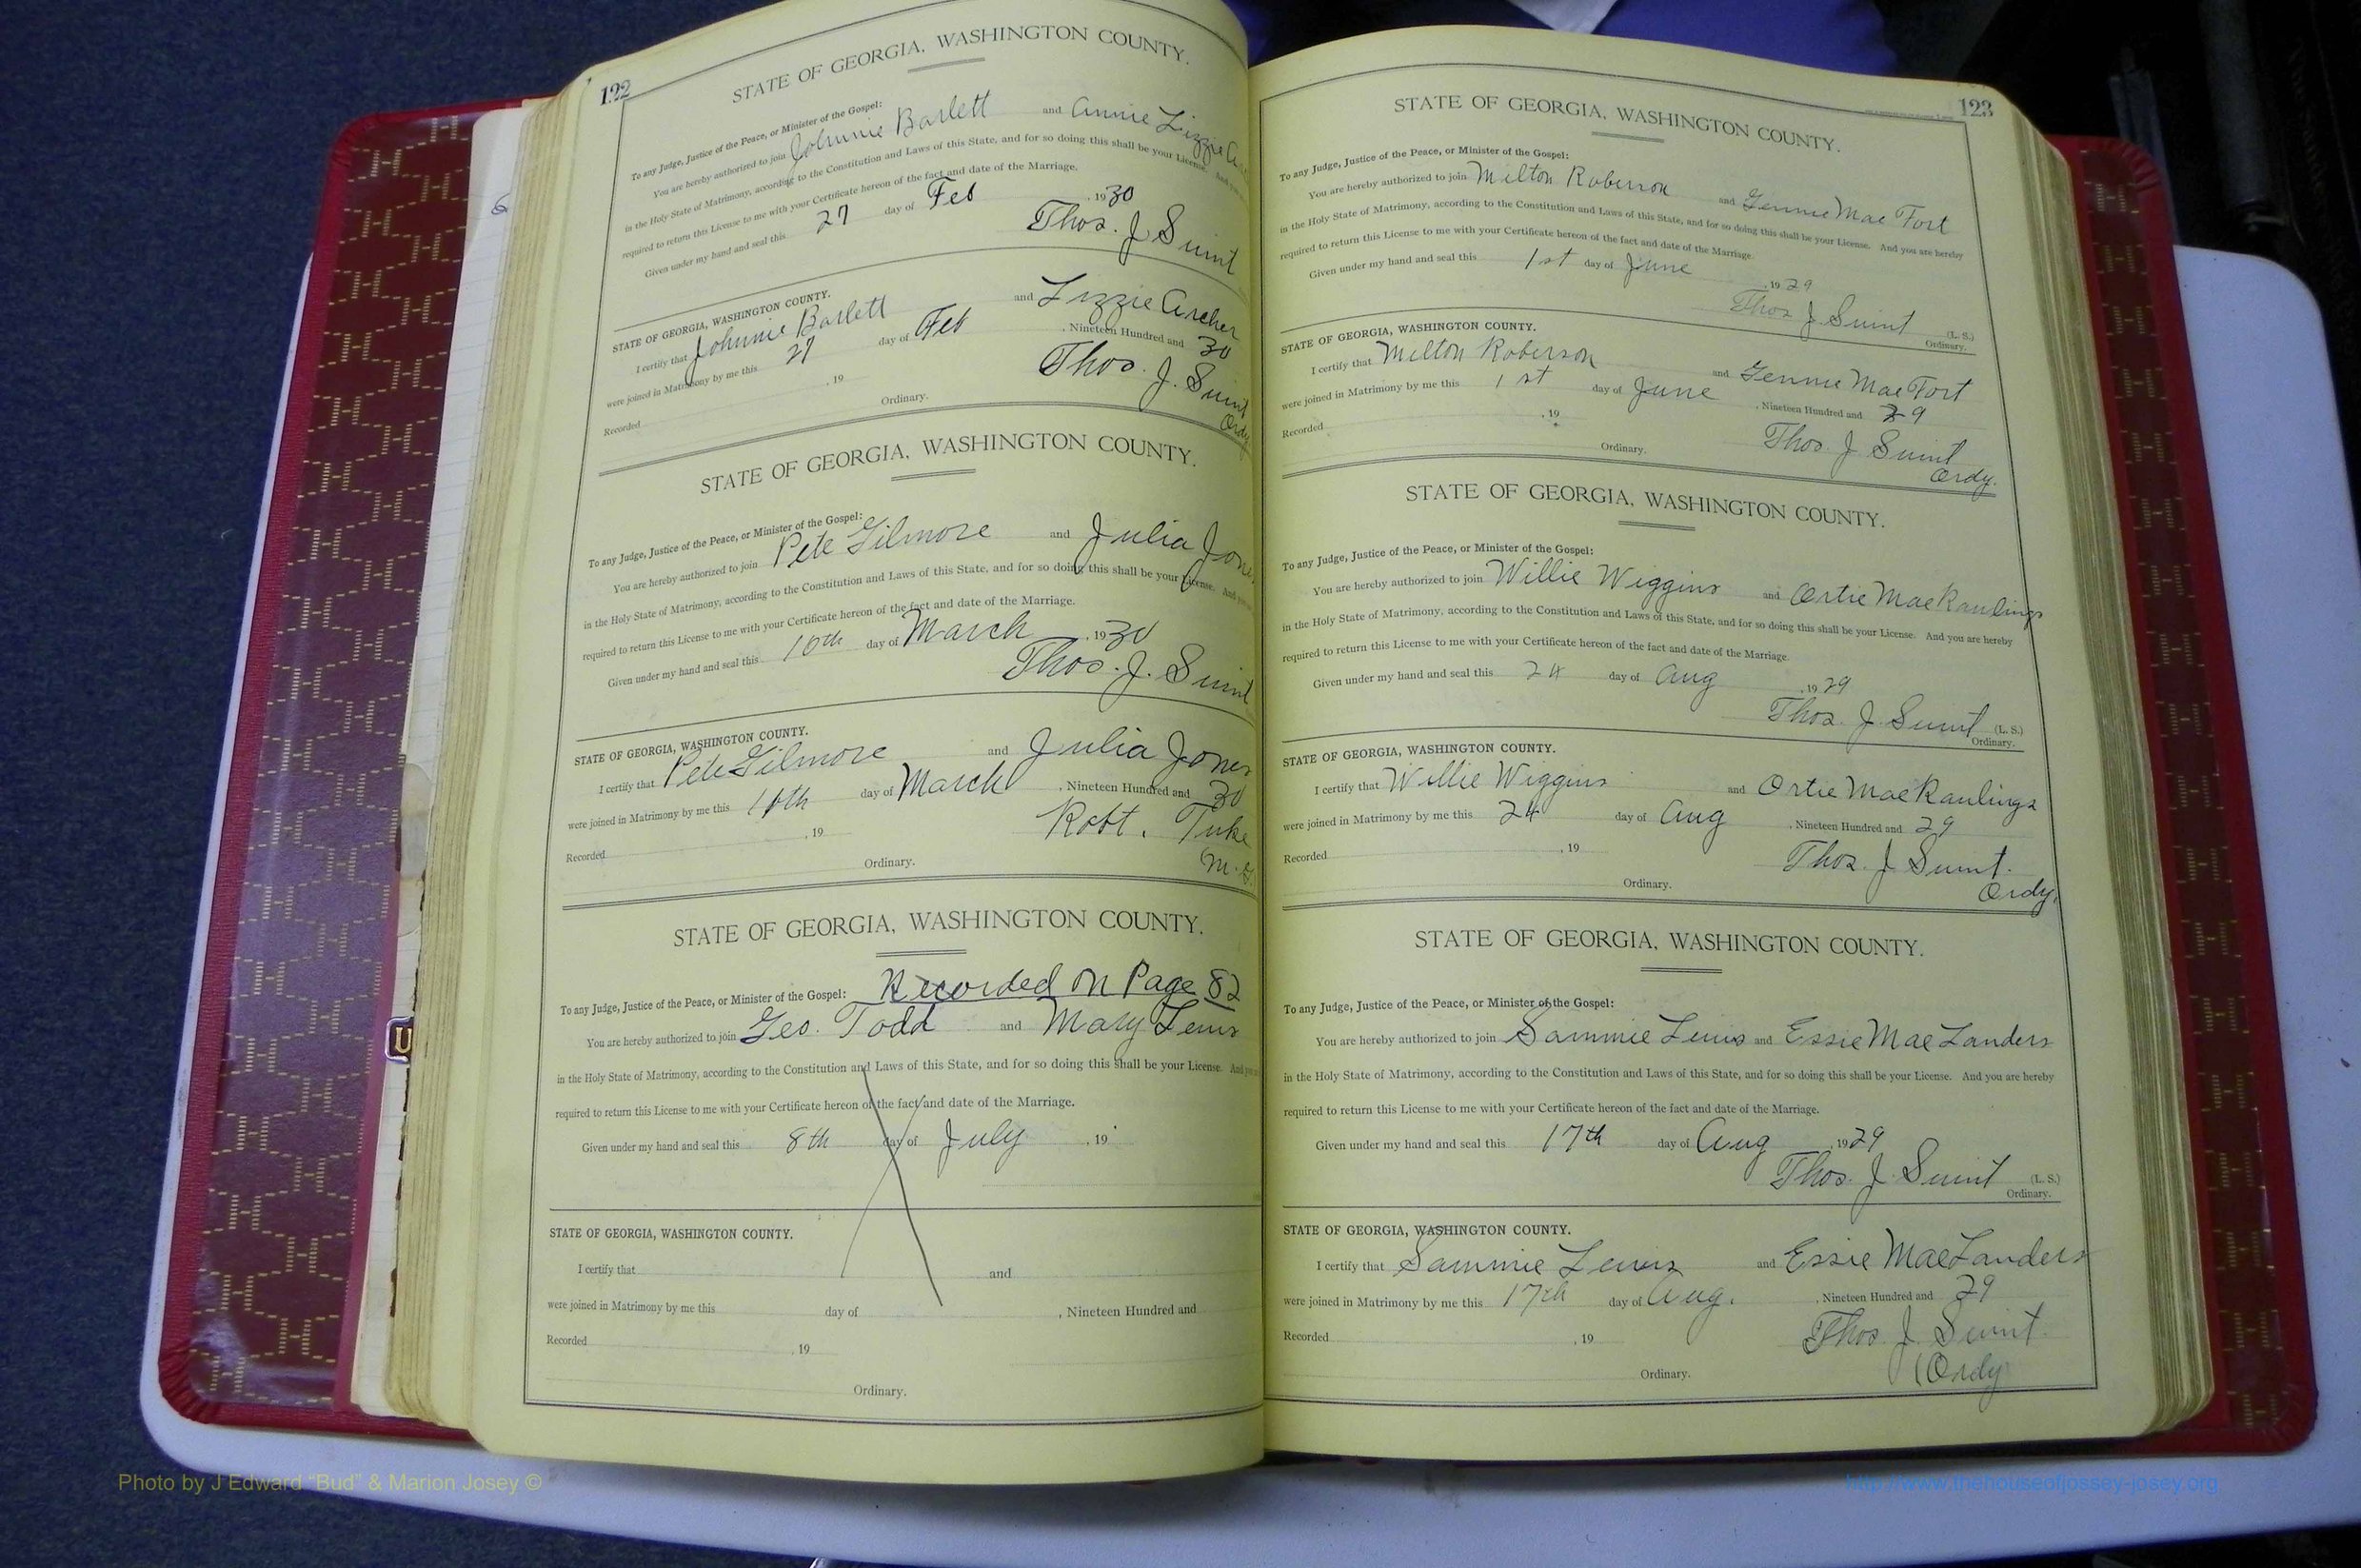 122
STATE OF GEORGIA, WASHINGTON COUNTY.
To any Judge, Justice of the Peace, or Minister of the Gospel:
You are hereby authorized to join Johnnie Barlett and Annie Lizzie
in the Holy State of Matrimony, according to the Constitution and Laws of this State, and for so doing this shall be your License. And you
required to return this License to me with your Certificate hereon of the fact and date of the Marriage.
Given under my hand and seal this 27 day of Feb , 1930
Thos. J. Swint
STATE OF GEORGIA, WASHINGTON COUNTY.
I certify that Johnnie Barlett and Lizzie Archer
were joined in Matrimony by me this 27 day of Feb , Nineteen Hundred and 30
Recorded , 19 Thos. J. Swint
Ordinary. Ordy
STATE OF GEORGIA, WASHINGTON COUNTY.
To any Judge, Justice of the Peace, or Minister of the Gospel:
You are hereby authorized to join Pete Gilmore and Julia Jones
in the Holy State of Matrimony, according to the Constitution and Laws of this State, and for so doing this shall be your License. And you
required to return this License to me with your Certificate hereon of the fact and date of the Marriage.
Given under my hand and seal this 10th day of March , 1930
Thos. J. Swint
STATE OF GEORGIA, WASHINGTON COUNTY.
I certify that Pete Gilmore and Julia Jones
were joined in Matrimony by me this 10th day of March , Nineteen Hundred and 30
Recorded , 19 Robt. Tuke
Ordinary. M.G.
STATE OF GEORGIA, WASHINGTON COUNTY.
Recorded on Page 82
To any Judge, Justice of the Peace, or Minister of the Gospel:
You are hereby authorized to join Geo. Todd and Mary Lewis
in the Holy State of Matrimony, according to the Constitution and Laws of this State, and for so doing this shall be your License. And you
required to return this License to me with your Certificate hereon of the fact and date of the Marriage.
Given under my hand and seal this 8th day of July , 19
STATE OF GEORGIA, WASHINGTON COUNTY.
I certify that and
were joined in Matrimony by me this day of , Nineteen Hundred and
Recorded , 19
Ordinary.
123
STATE OF GEORGIA, WASHINGTON COUNTY.
To any Judge, Justice of the Peace, or Minister of the Gospel:
You are hereby authorized to join Milton Roberson and Gennie Mae Fort
in the Holy State of Matrimony, according to the Constitution and Laws of this State, and for so doing this shall be your License. And you are hereby
required to return this License to me with your Certificate hereon of the fact and date of the Marriage.
Given under my hand and seal this 1st day of June , 1929
Thos J Swint (L. S.)
Ordinary.
STATE OF GEORGIA, WASHINGTON COUNTY.
I certify that Milton Roberson and Gennie Mae Fort
were joined in Matrimony by me this 1st day of June , Nineteen Hundred and 29
Recorded , 19 Thos. J Swint
Ordinary. Ordy.
STATE OF GEORGIA, WASHINGTON COUNTY.
To any Judge, Justice of the Peace, or Minister of the Gospel:
You are hereby authorized to join Willie Wiggins and Ortie Mae Rawlings
in the Holy State of Matrimony, according to the Constitution and Laws of this State, and for so doing this shall be your License. And you are hereby
required to return this License to me with your Certificate hereon of the fact and date of the Marriage.
Given under my hand and seal this 24 day of Aug , 1929
Thos. J. Swint (L. S.)
Ordinary.
STATE OF GEORGIA, WASHINGTON COUNTY.
I certify that Willie Wiggins and Ortie Mae Rawlings
were joined in Matrimony by me this 24 day of Aug , Nineteen Hundred and 29
Recorded , 19 Thos. J Swint.
Ordinary. Ordy.
STATE OF GEORGIA, WASHINGTON COUNTY.
To any Judge, Justice of the Peace, or Minister of the Gospel:
You are hereby authorized to join Sammie Lewis and Essie Mae Landers
in the Holy State of Matrimony, according to the Constitution and Laws of this State, and for so doing this shall be your License. And you are hereby
required to return this License to me with your Certificate hereon of the fact and date of the Marriage.
Given under my hand and seal this 17th day of Aug , 1929
Thos. J. Swint (L. S.)
Ordinary.
STATE OF GEORGIA, WASHINGTON COUNTY.
I certify that Sammie Lewis and Essie Mae Landers
were joined in Matrimony by me this 17th day of Aug. , Nineteen Hundred and 29
Recorded , 19 Thos. J. Swint.
Ordinary. Ordy
Photo by J Edward “Bud” & Marion Josey ©
http://www.thehouseofjossey-josey.org